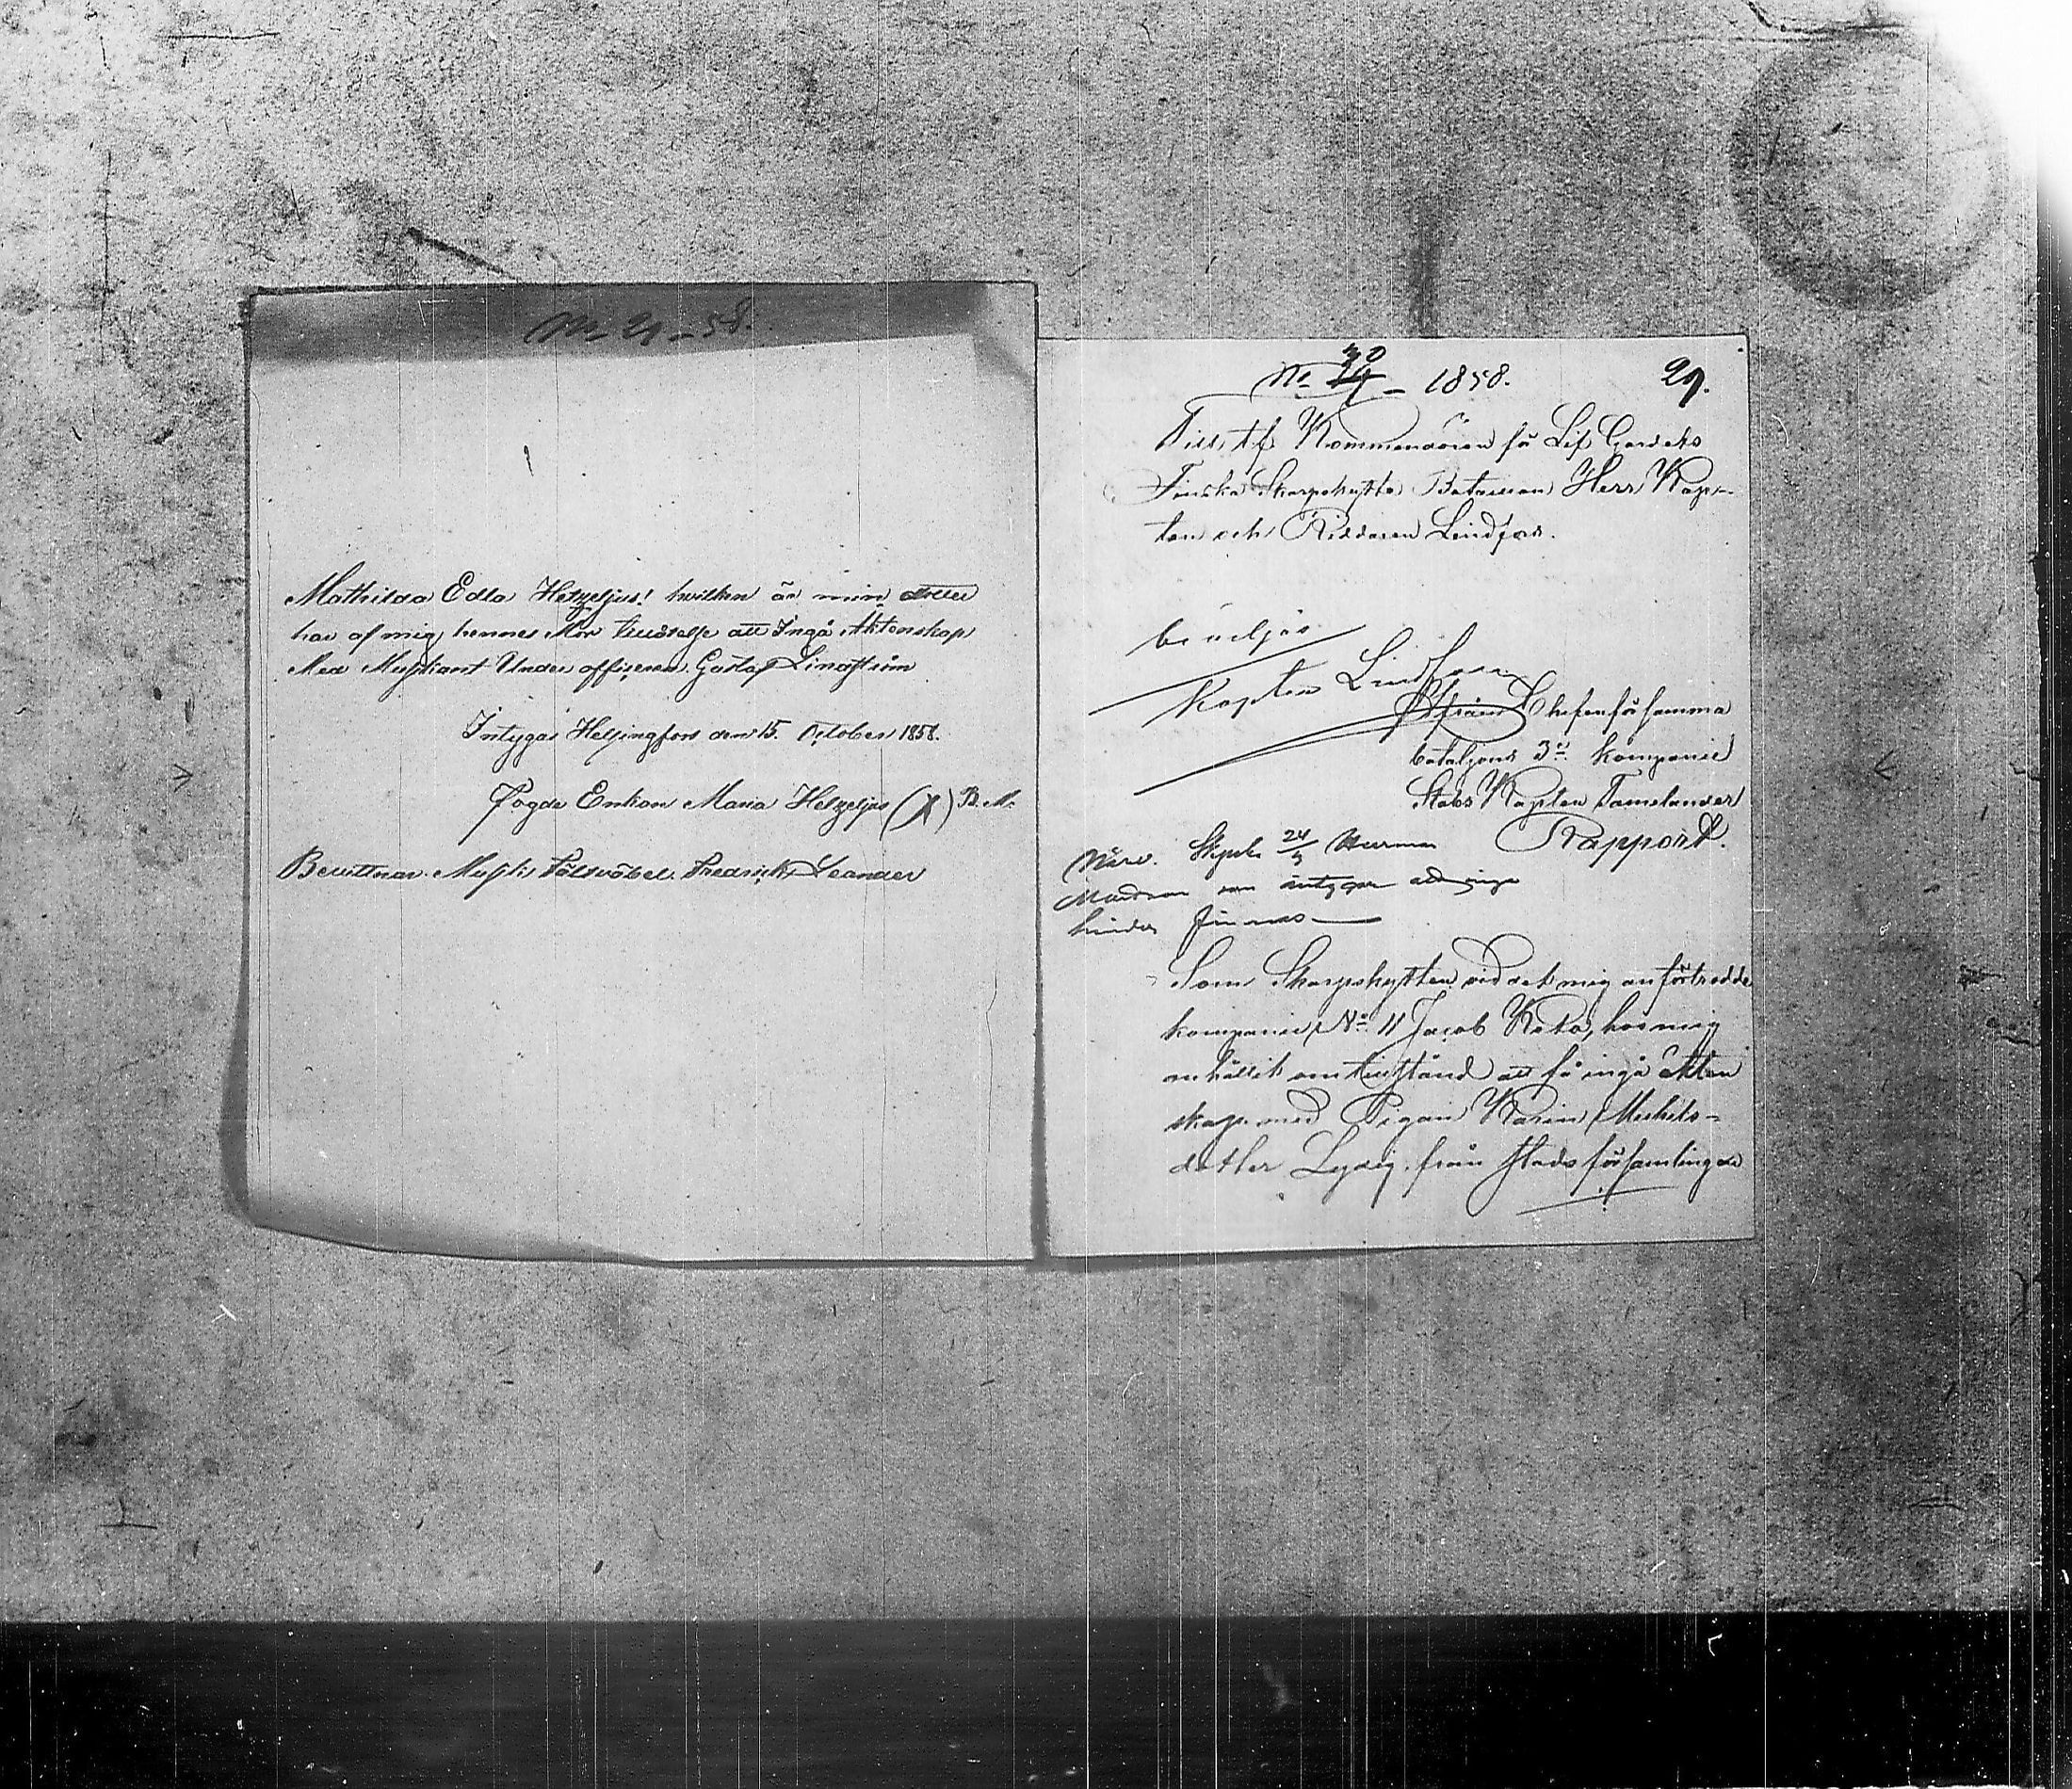 No 29 - 58.
Mathilda Edla Helzeljus! hvilken är min dotter
har af mig hennes Mor tillåtelse att Ingå Äktenskap
Med Musikant Under officeren Gustaf Lindström
Intygas Helsingfors den 15. October 1858.
Fogde Enkan Maria Helzeljus (X) B. M.
Bevittnar. Musik Fältväbel Fredrick Leander
No 30 - 1858. 29.
Till, t.f. Kommendören för Lif Gardets
Finska Skarpskytte Bataillon Herr Kap-
ten och Riddaren Lindfors.
beviljas
Kapten Lindfors
från Chefen för samma
bataljons 3e kompanie
Stabs Kapten Tamelander
Rapport.
Närv. 24
som intygar att inga
hinder finnas
Som Skarpskytten vid det mig anförtrodde
kompanie No 11 Jacob Keto, hos mig
anhållit om tillstånd att få ingå äkten
skap med Pigan Karin Michels-
dotter Lydig från Stads församlingen